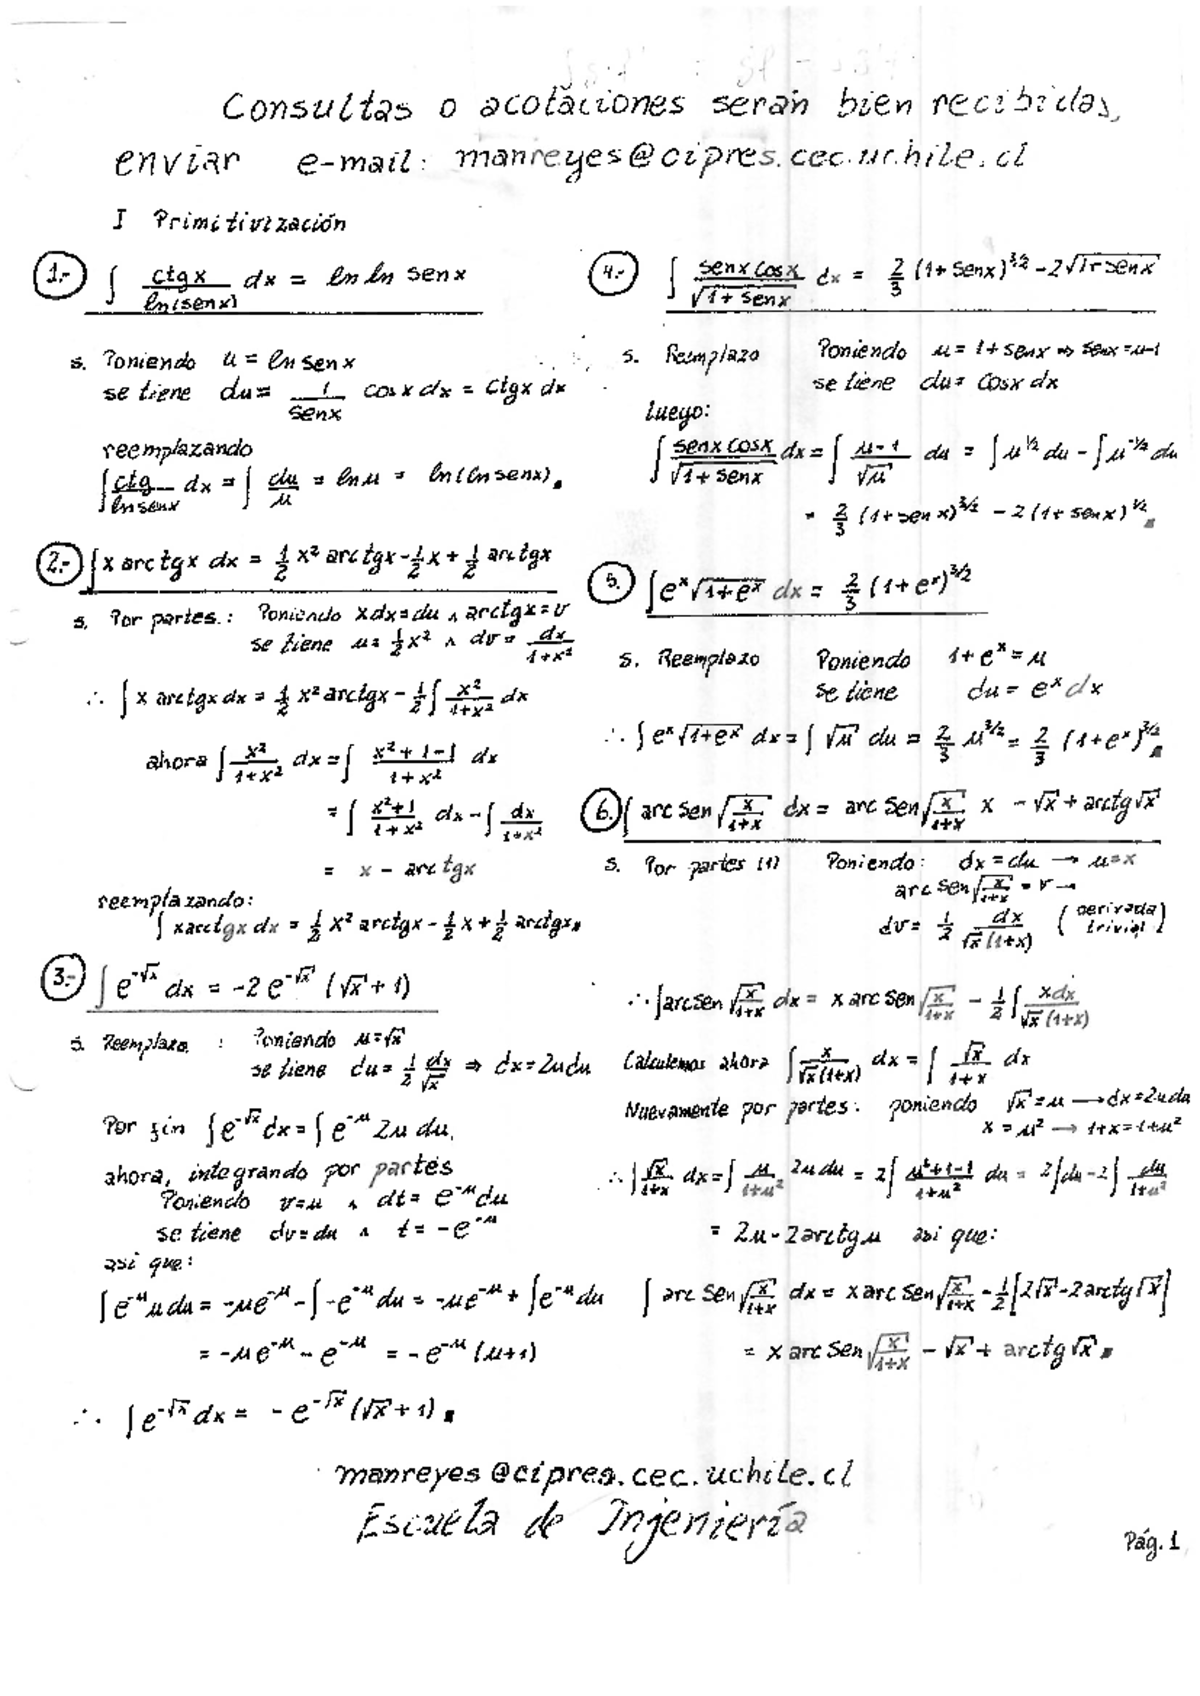 Consultas o acotaciones serán bien recibidas,
enviar e-mail: manreyes@cipres.cec.uchile.cl
I Primitivización
1.- ∫ ctgx / ln(senx) dx = ln ln senx
s. Poniendo u = ln senx
se tiene du = 1/senx cosx dx = ctgx dx
reemplazando
∫ ctg / ln senx dx = ∫ du/u = ln u = ln(ln senx).
2.- ∫ x arctgx dx = 1/2 x² arctgx - 1/2 x + 1/2 arctgx
s. Por partes.: Poniendo xdx = du ∧ arctgx = v
se tiene u = 1/2 x² ∧ dv = dx/(1+x²)
∴ ∫ x arctgx dx = 1/2 x² arctgx - 1/2 ∫ x²/(1+x²) dx
ahora ∫ x²/(1+x²) dx = ∫ (x²+1-1)/(1+x²) dx
= ∫ (x²+1)/(1+x²) dx - ∫ dx/(1+x²)
= x - arctgx
reemplazando:
∫ xarctgx dx = 1/2 x² arctgx - 1/2 x + 1/2 arctgx.
3.- ∫ e^(-√x) dx = -2 e^(-√x) (√x + 1)
s. Reemplazo : Poniendo u = √x
se tiene du = 1/2 dx/√x ⇒ dx = 2udu
Por fin ∫ e^(-√x) dx = ∫ e^(-u) 2u du.
ahora, integrando por partes
Poniendo v = u ∧ dt = e^(-u) du
se tiene dv = du ∧ t = -e^(-u)
asi que:
∫ e^(-u) u du = -ue^(-u) - ∫ -e^(-u) du = -ue^(-u) + ∫ e^(-u) du
= -ue^(-u) - e^(-u) = -e^(-u) (u+1)
∴ ∫ e^(-√x) dx = -e^(-√x) (√x + 1).
4.- ∫ senx cosx / √(1+senx) dx = 2/3 (1+senx)^(3/2) - 2√(1+senx)
s. Reemplazo Poniendo u = 1+senx ⇒ senx = u-1
se tiene du = cosx dx
Luego:
∫ senx cosx / √(1+senx) dx = ∫ (u-1)/√u du = ∫ u^(1/2) du - ∫ u^(-1/2) du
= 2/3 (1+senx)^(3/2) - 2(1+senx)^(1/2).
5. ∫ e^x √(1+e^x) dx = 2/3 (1+e^x)^(3/2)
s. Reemplazo Poniendo 1+e^x = u
se tiene du = e^x dx
∴ ∫ e^x √(1+e^x) dx = ∫ √u du = 2/3 u^(3/2) = 2/3 (1+e^x)^(3/2).
6. ∫ arcsen √(x/(1+x)) dx = arcsen √(x/(1+x)) x - √x + arctg√x
s. Por partes (1) Poniendo: dx = du → u = x
arcsen √(x/(1+x)) = v →
dv = 1/2 dx/(√x(1+x)) (derivada trivial)
∴ ∫ arcsen √(x/(1+x)) dx = x arcsen √(x/(1+x)) - 1/2 ∫ xdx/(√x(1+x))
Calculemos ahora ∫ x/(√x(1+x)) dx = ∫ √x/(1+x) dx
Nuevamente por partes: poniendo √x = u → dx = 2udu
x = u² → 1+x = 1+u²
∴ ∫ √x/(1+x) dx = ∫ u/(1+u²) 2udu = 2∫ (u²+1-1)/(1+u²) du = 2∫du - 2∫ du/(1+u²)
= 2u - 2arctgu asi que:
∫ arcsen √(x/(1+x)) dx = x arcsen √(x/(1+x)) - 1/2 [2√x - 2arctg√x]
= x arcsen √(x/(1+x)) - √x + arctg√x.
manreyes@cipres.cec.uchile.cl
Escuela de Injeniería
Pág. 1